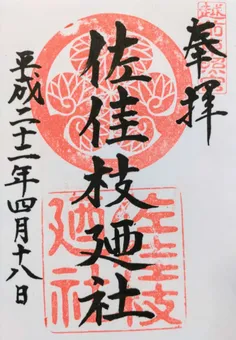 奉拝
佐佳枝廼社
平成二十二年四月十八日
佐佳枝
廼社